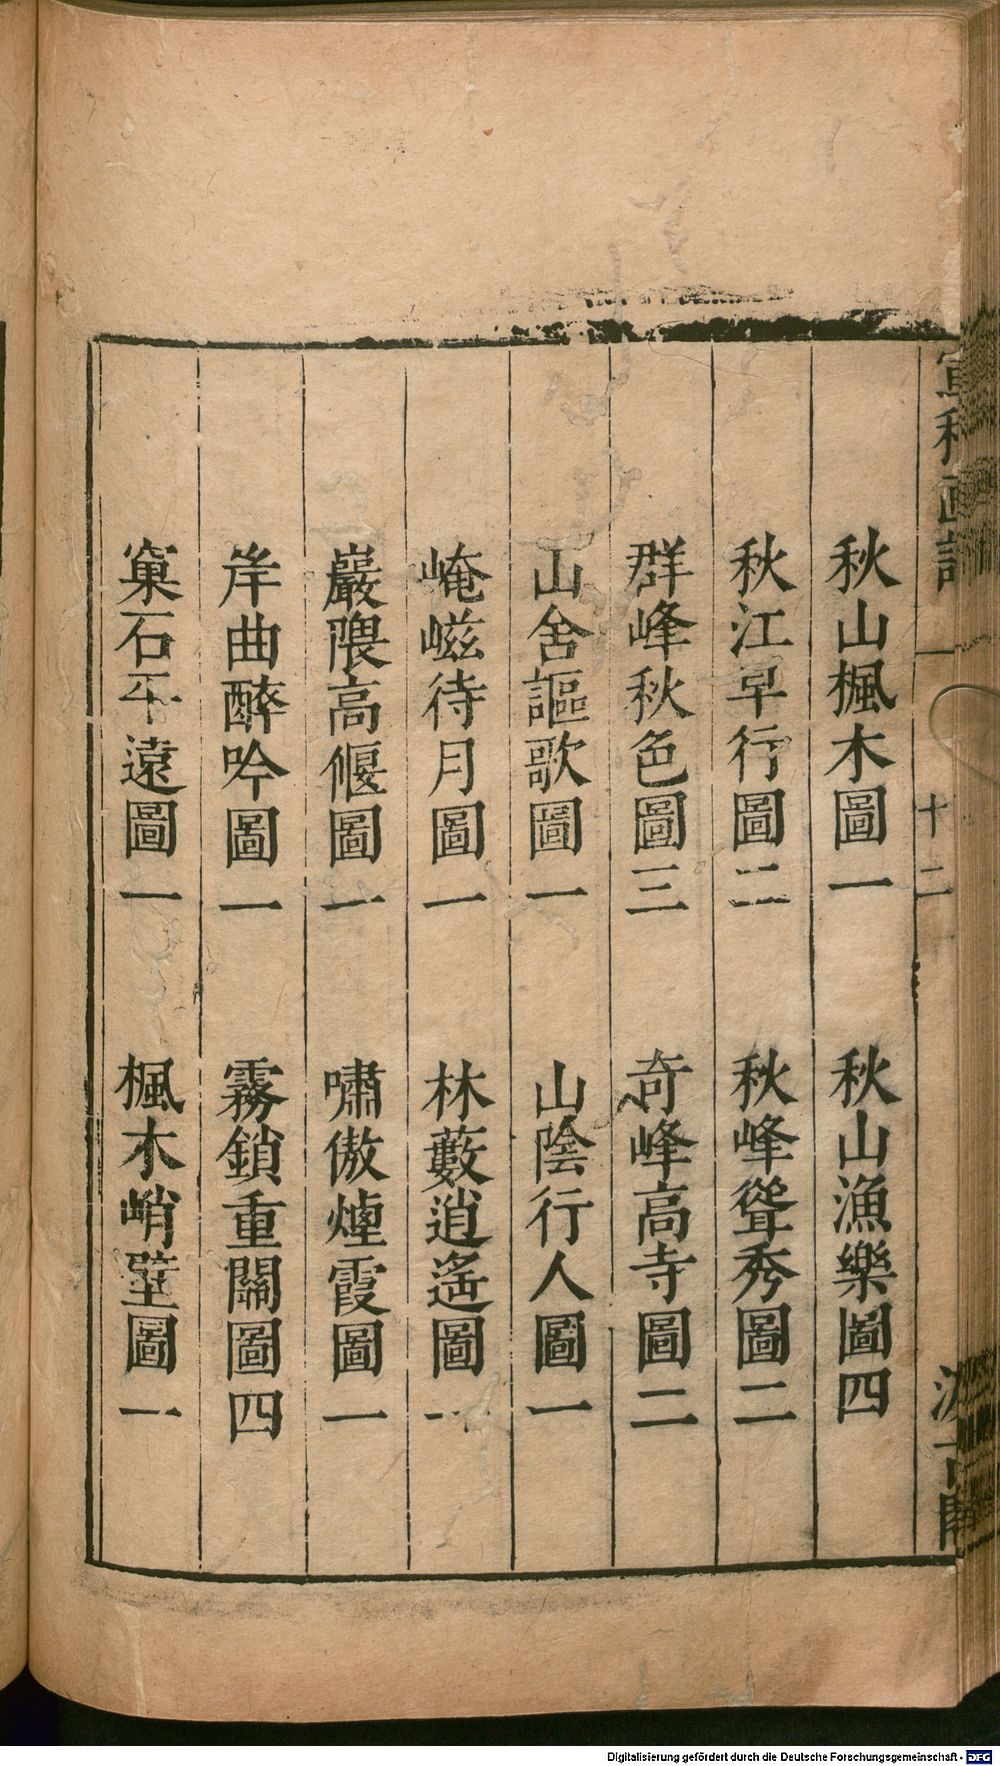 秋山楓木圖一　秋山漁樂圖四
秋江早行圖二　秋峰聳秀圖二
群峰秋色圖三　奇峰高寺圖二
山舍謳歌圖一　山陰行人圖一
崦嵫待月圖一　林藪逍遙圖一
巖隈高偃圖一　嘯傲煙霞圖一
岸曲醉吟圖一　霧鎖重關圖四
窠石平遠圖一　楓木峭壁圖一
十二
Digitalisierung gefördert durch die Deutsche Forschungsgemeinschaft - DFG